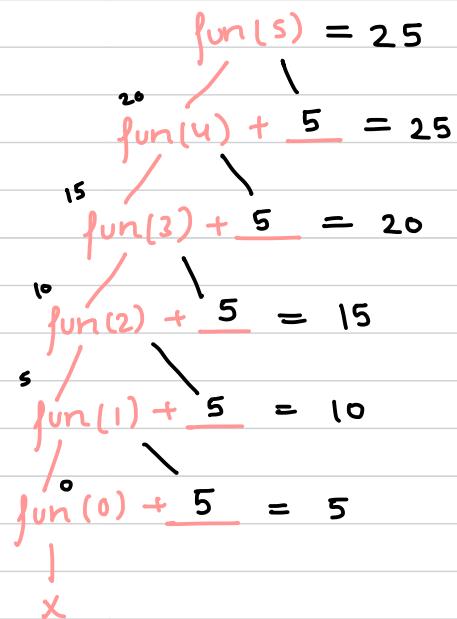 fun(5) = 25
20
fun(4) + 5 = 25
15
fun(3) + 5 = 20
10
fun(2) + 5 = 15
5
fun(1) + 5 = 10
0
fun(0) + 5 = 5
x